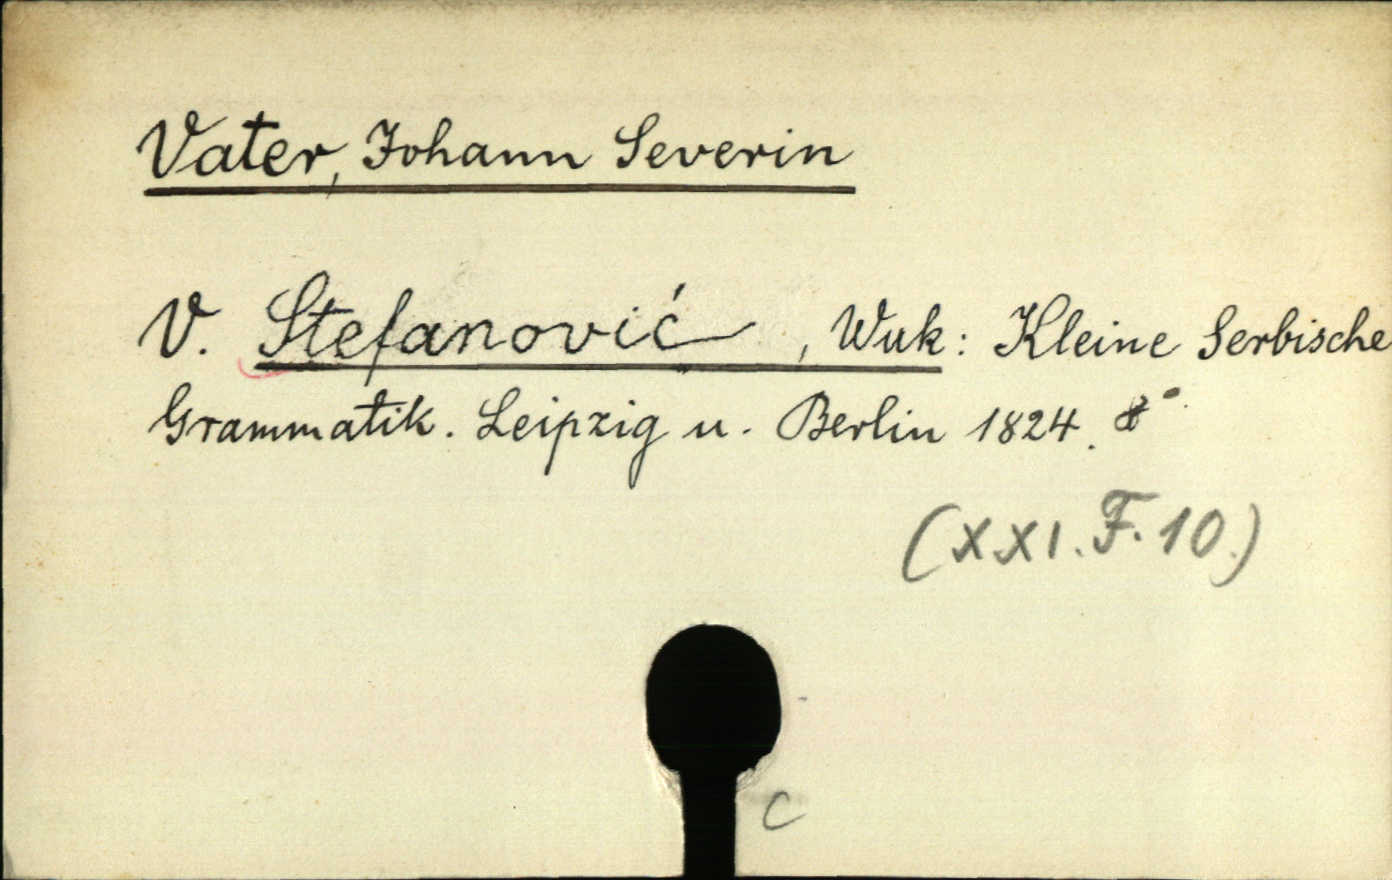 Vater, Johann Severin
V. Stefanović, Wuk: Kleine Serbische
Grammatik. Leipzig u. Berlin 1824. 8°
(XXI. F. 10.)
C